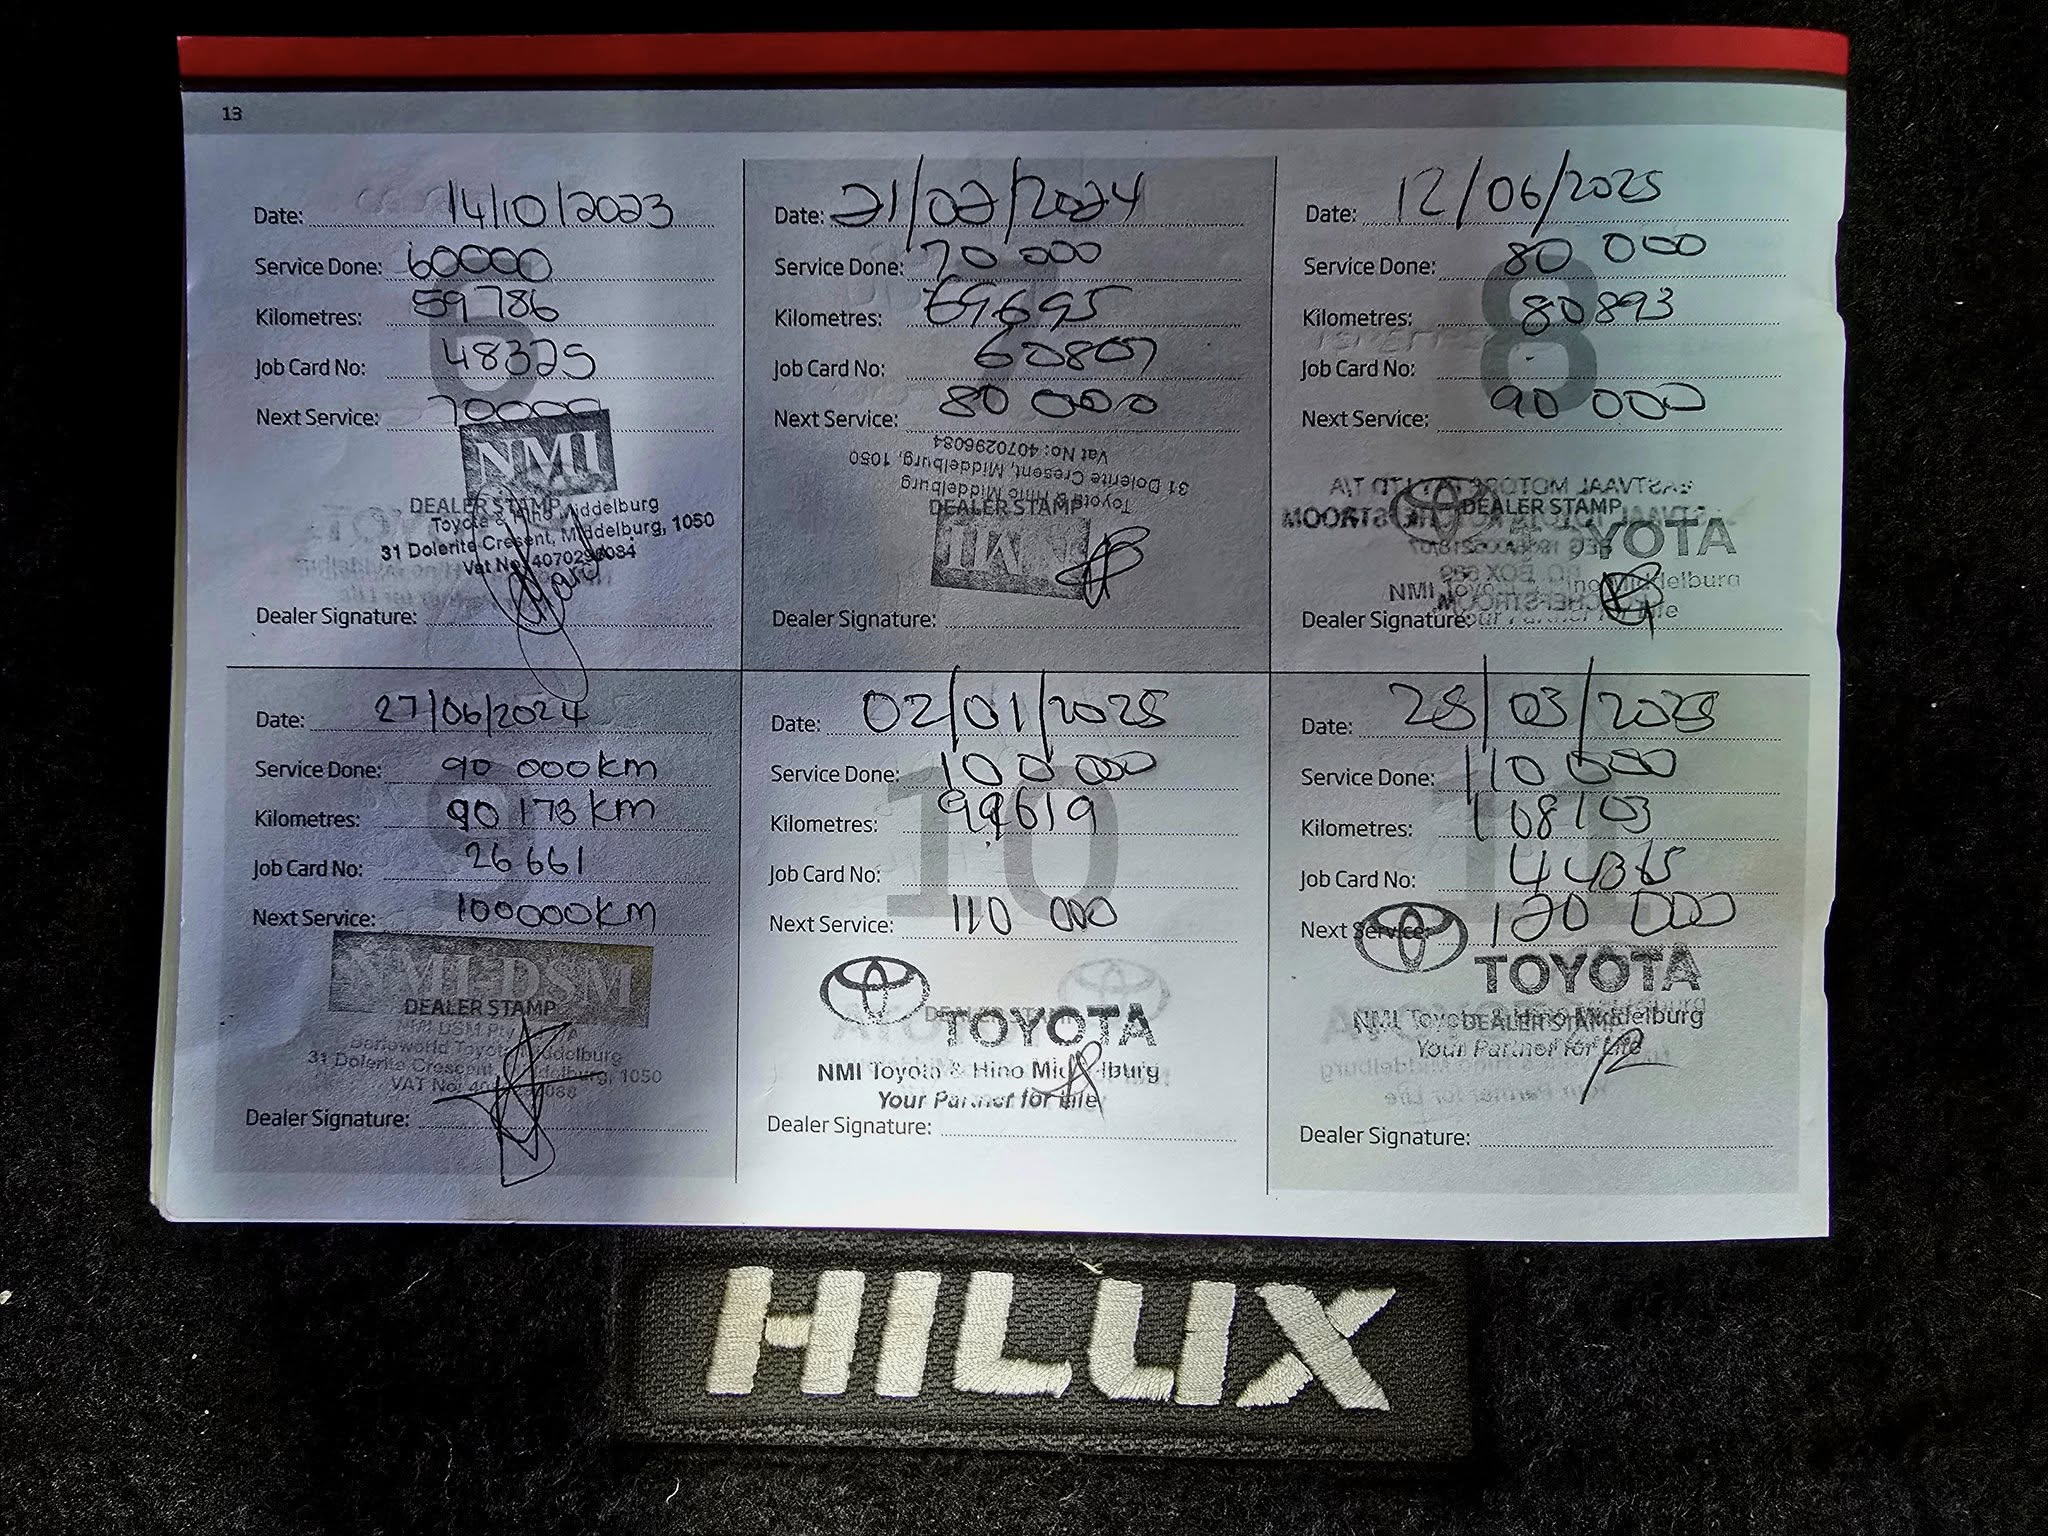 13
Date: 14/10/2023
Service Done: 60000
Kilometres: 59786
Job Card No: 48325
Next Service: 70000
NMI
DEALER STAMP Middelburg
Toyota & Hino Middelburg
31 Dolerite Cresent, Middelburg, 1050
Vat No: 4070296084
Dealer Signature:
Date: 21/02/2024
Service Done: 70 000
Kilometres: 69695
Job Card No: 60807
Next Service: 80 000
Vat No: 4070296084
31 Dolerite Cresent, Middelburg, 1050
Toyota & Hino Middelburg
DEALER STAMP
NMI
Dealer Signature:
Date: 12/06/2025
Service Done: 80 000
Kilometres: 80893
Job Card No:
Next Service: 90 000
DEALER STAMP
TOYOTA
NMI Toyota Hino Middelburg
Your Partner for Life
Dealer Signature:
Date: 27/06/2024
Service Done: 90 000km
Kilometres: 90 173km
Job Card No: 26661
Next Service: 100000km
NMI-DSM
DEALER STAMP
NMI DSM Pty
Toyota Middelburg
31 Dolerite Crescent, Middelburg, 1050
VAT No:
Dealer Signature:
Date: 02/01/2025
Service Done: 100 000
Kilometres: 99619
Job Card No:
Next Service: 110 000
DEALER STAMP
TOYOTA
NMI Toyota & Hino Middelburg
Your Partner for Life
Dealer Signature:
Date: 28/03/2025
Service Done: 110 000
Kilometres: 108103
Job Card No: 44365
Next Service: 120 000
TOYOTA
NMI Toyota & Hino Middelburg
DEALER STAMP
Your Partner for Life
Dealer Signature:
6
8
9
10
11
HILUX